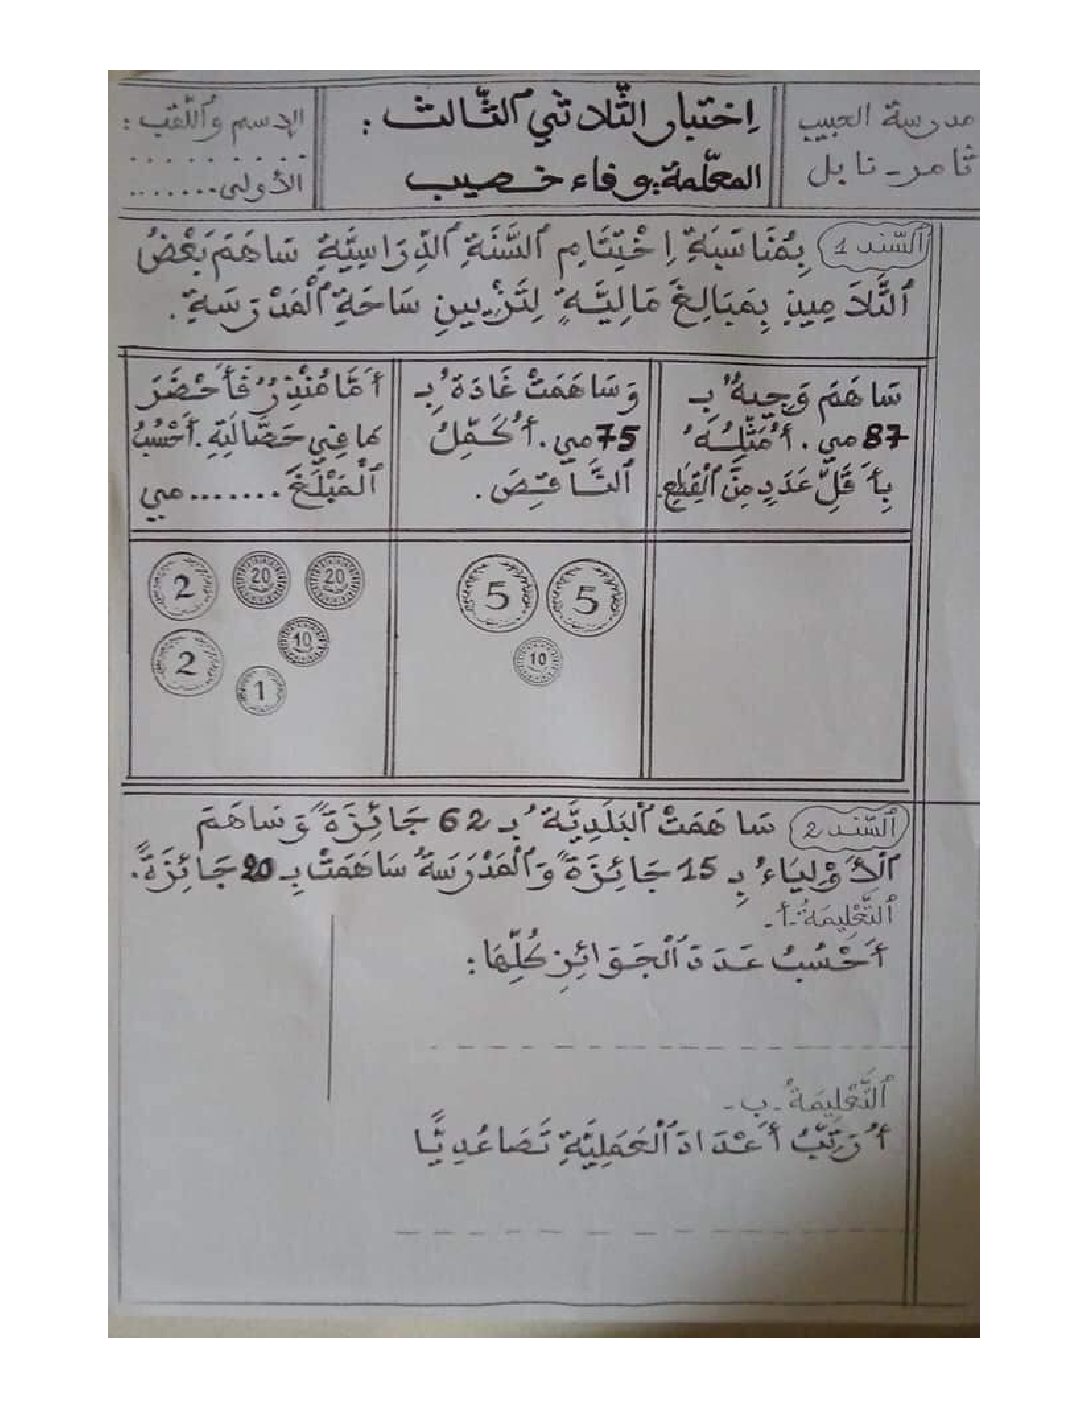 مدرسة الحبيب
ثامر - نابل
اِختبار الثّلاثي ٱلثّالث :
المعلّمة: وفاء خصيب
الإسم وٱللّقب :
. . . . . . . . .
الأولى.......
ٱلسّند 1 بِمُنَاسَبَةِ اِخْتِتَامِ ٱلسَّنَةِ ٱلدِّرَاسِيَّةِ سَاهَمَ بَعْضُ
ٱلتَّلَامِيذِ بِمَبَالِغَ مَالِيَّةٍ لِتَزْيِينِ سَاحَةِ ٱلْمَدْرَسَةِ.
سَاهَمَ وَجِيهٌ بِـ
87 مي. أُمَثِّلُهُ
بِأَقَلِّ عَدَدٍ مِنَ ٱلْقِطَعِ.
وَسَاهَمَتْ غَادَةُ بِـ
75 مي. أُكَمِّلُ
ٱلنَّاقِصَ.
أَمَّا مُنْذِرٌ فَأَحْضَرَ
مَا فِي حَصَّالَتِهِ. أَحْسُبُ
ٱلْمَبْلَغَ ....... مي
5 5
10
2 20 20
10
2
1
ٱلسّند 2 سَاهَمَتْ ٱلبَلَدِيَّةُ بِـ 62 جَائِزَةً وَسَاهَمَ
ٱلْأَوْلِيَاءُ بِـ 15 جَائِزَةً وَٱلْمَدْرَسَةُ سَاهَمَتْ بِـ 20 جَائِزَةً.
ٱلتَّعْلِيمَةُ -أ-
أَحْسُبُ عَدَدَ ٱلْجَوَائِزِ كُلِّهَا :
ٱلتَّعْلِيمَةُ -ب-
أُرَتِّبُ أَعْدَادَ ٱلْعَمَلِيَّةِ تَصَاعُدِيًّا